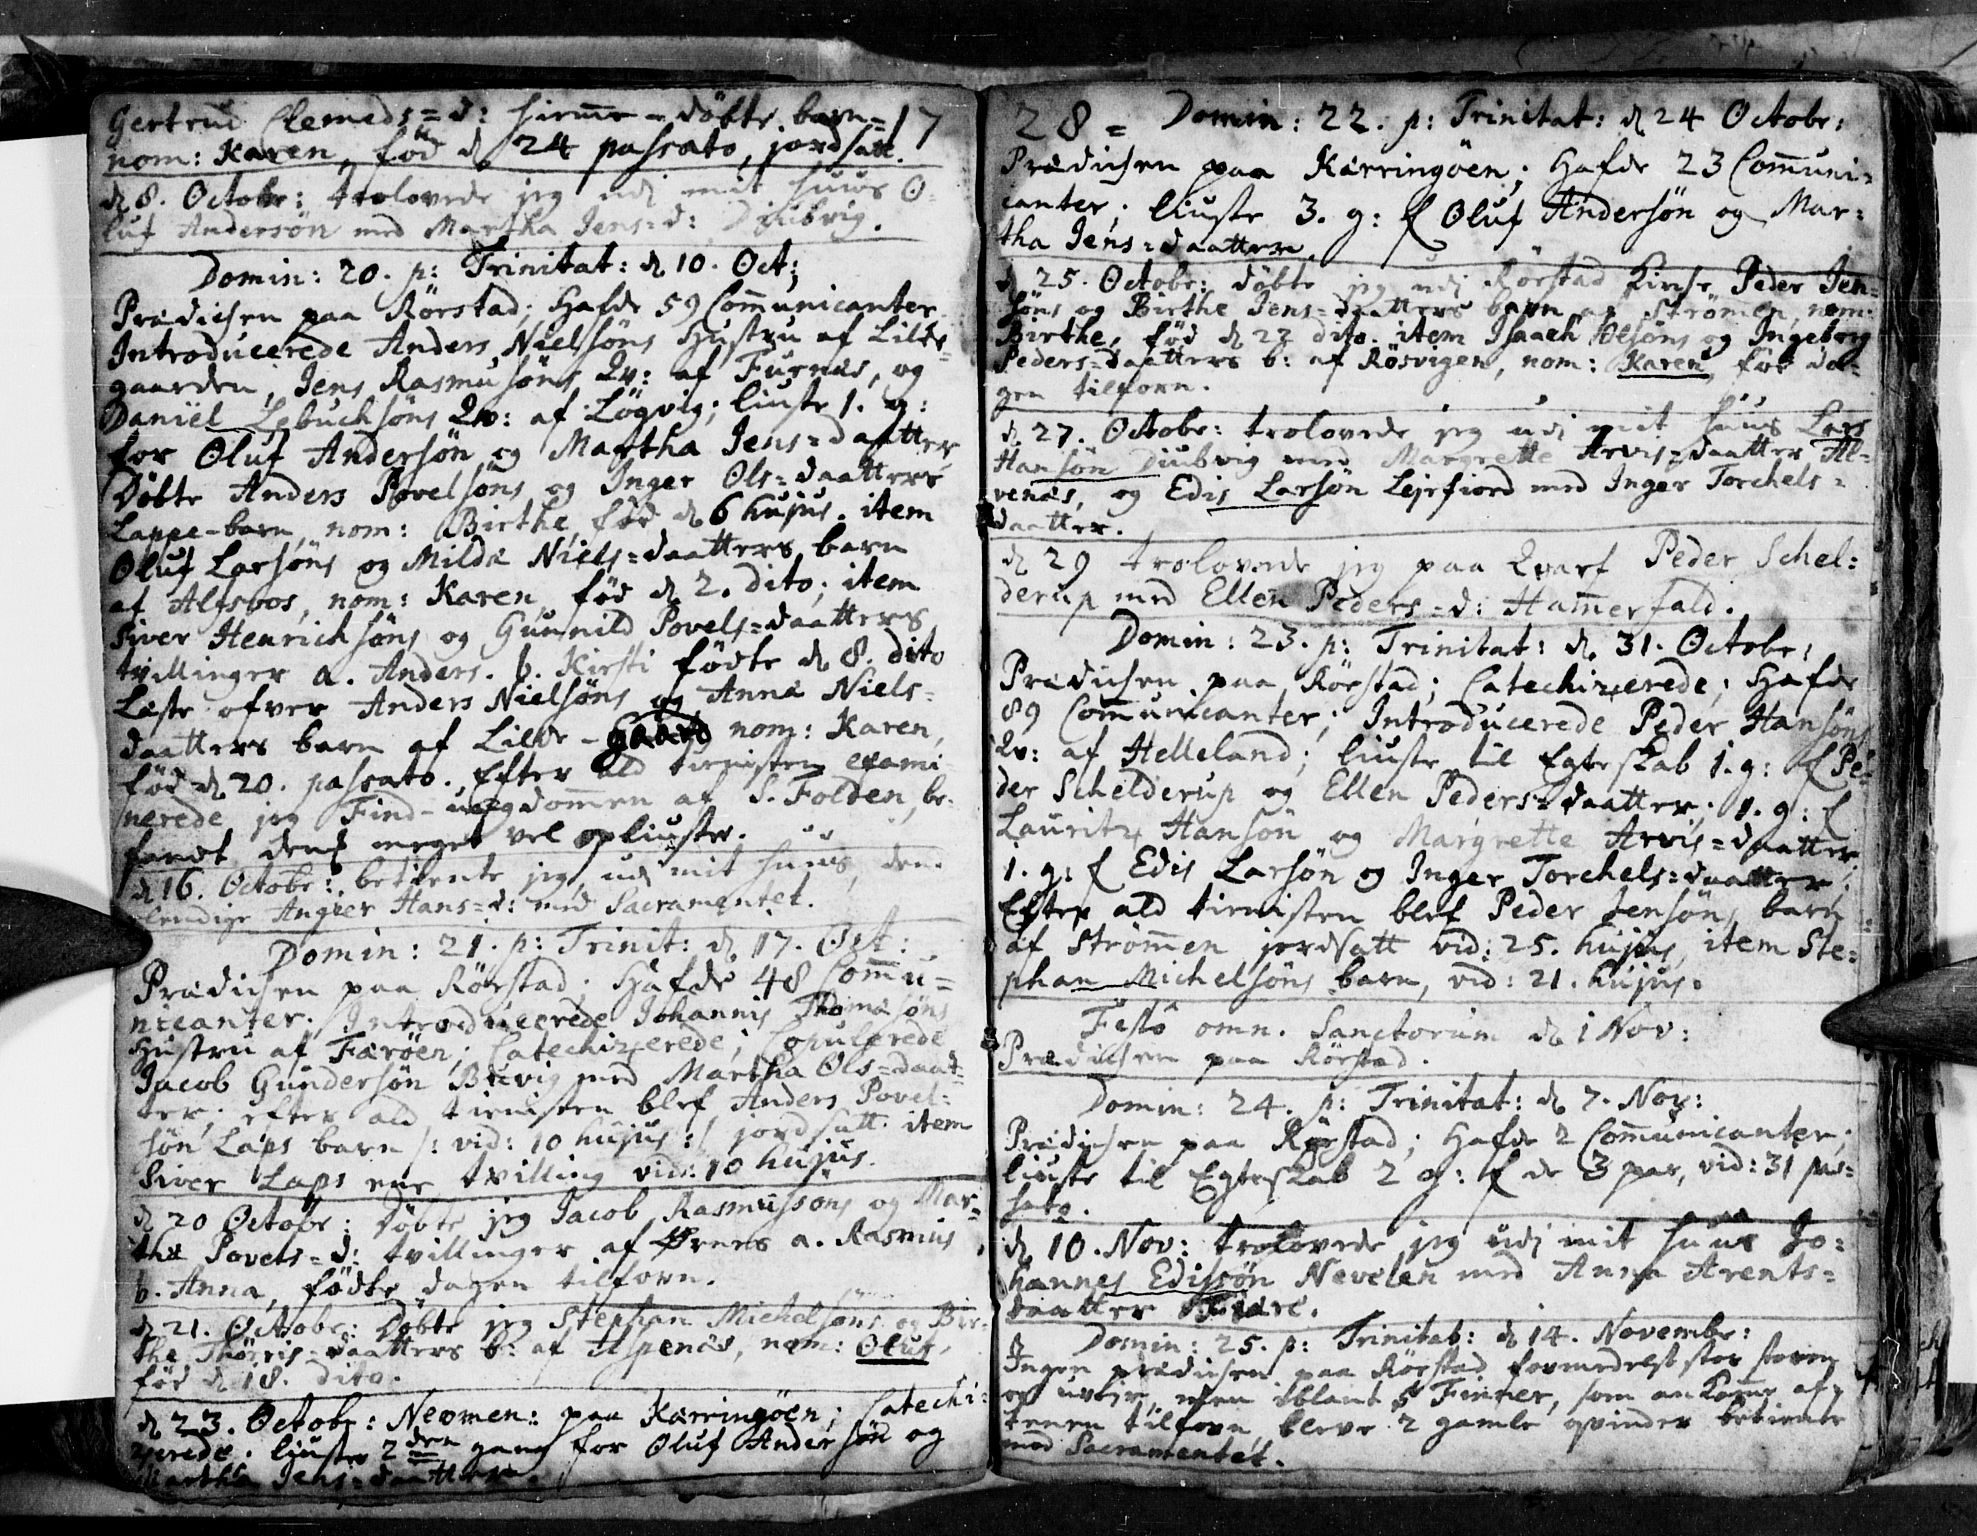 Gertrud Clemeds=d: hiemme=døbte barn=17
nom: Karen, fød d 24 passato, jordsatt.
d 8. Octobr: trolovede jeg udj mit huus O=
luf Andersön med Martha Jens=d: Diubvig.
Domin: 20. p: Trinitat: d 10. Oct:
Prædichen paa Rörstad; Hafde 59 Communicanter
Introducerede Anders Nielsöns Hustru af Lilde=
gaarden, Jens Rasmusöns Qv: af Furnæs, og
Daniel Lebuchsöns Qv: af Lögvig; liuste 1. g:
for Oluf Andersön og Martha Jens=daatter
Döbte Anders Povelsöns og Inger Ols=daatters
Lappe-barn, nom: Birthe, fød d 6 hujus. item
Oluf Larsöns og Milda Niels=daatters barn
af Alfsvos, nom: Karen, fød d 2. dito; item
Siver Henrichsöns og Gunnild Povels=daatters
tvillinger a. Anders. b. Kirsti fødte d 8. dito
Læste ofver Anders Nielsöns og Anna Niels=
daatters barn af Lilde-gaard nom: Karen,
fød d 20. passato. Efter ald tienisten exami=
nerede jeg Find-ungdommen af S. Folden, be=
fandt dend meget vel opliuste.
d 16. Octobr: betiente jeg, udj mit huus, den
elendige Angier Hans=d: med Sacramentet.
Domin: 21. p: Trinit: d 17. Oct:
Prædichen paa Rörstad; Hafde 48 Commu=
nicanter; Introducerede Johannis Thomasöns
Hustru af Færöen; Catechizerede; Copulerede
Jacob Gundersön Buvig med Martha Ols=daat=
ter; efter ald tienisten blef Anders Povel=
sön Laps barn /: vid: 10 hujus :/ jordsatt. item
Siver Laps ene tvilling vid: 10 hujus.
d 20 Octobr: Döbte jeg Jacob Rasmusöns og Mar=
tha Povels=d: tvillinger af Ørnes a. Rasmus
b. Anna, fødte dagen tilforn.
d 21. Octobr: Döbte jeg Stephan Michelsöns og Bir=
the Thorris=daatters b: af Espenæs, nom: Oluf,
fød d 18. dito.
d 23. Octobr: Neomen: paa Kærringöen; Catechi=
zerede; liuste 2den gang for Oluf Andersön og
Martha Jens=daatter.
28 = Domin: 22. p: Trinitat: d 24 Octobr:
Prædichen paa Kærringöen; Hafde 23 Communi=
canter; liuste 3. g: f Oluf Andersön og Mar=
tha Jens=daatter.
d 25. Octobr: döbte jeg udj Rörstad Kirche Peder Jen=
söns og Birthe Jens=daatters barn af Strömen, nom:
Birthe, fød d 22 dito. item Isaach Olsöns og Ingeborg
Peders=daatters b: af Rösvigen, nom: Karen, fød da=
gen tilforn.
d 27. Octobr: trolovede jeg udj mit huus Lars
Hansön Diubvig med Margrette Arvis=daatter Al=
venæs, og Edis Larsön Lejrfiord med Inger Torchels=
daatter.
d 29 trolovede jeg paa Qvarf Peder Schel=
derup med Ellen Peders=d: Hammerfald.
Domin: 23. p: Trinitat: d 31. Octobr:
Prædichen paa Rörstad; Catechizerede; Hafde
89 Communicanter; Introducerede Peder Hansöns
Qv: af Helleland; liuste til Egteskab 1. g: f Pe=
der Schelderup og Ellen Peders=daatter; 1. g: f
Lauritz Hansön og Margrette Arvis=daatter
1. g: f Edis Larsön og Inger Torchels=daatter;
Efter ald tienisten blef Peder Jensöns barn
af Strömmen jordsatt vid: 25. hujus, item Ste=
phan Michelsöns barn, vid: 21. hujus.
Festo omn. Sanctorum d 1 Nov:
Prædichen paa Rörstad.
Domin: 24. p: Trinitat: d 7. Nov:
Prædichen paa Rörstad; Hafde 2 Communicanter;
liuste til Egteskab 2 g: f de 3 par, vid: 31 pas=
sato.
d 10. Nov: trolovede jeg udj mit huus Jo=
hannes Edissön Nevelen med Anna Arents=
daatter
Domin: 25. p: Trinitat: d 14. Novembr:
Ingen prædichen paa Rörstad formedelst stor storm
og uvejr, men iblant 5 Finner, som ankomme af=
tenen tilforn, bleve 2 gamle qvinder betiente
med Sacramentet.